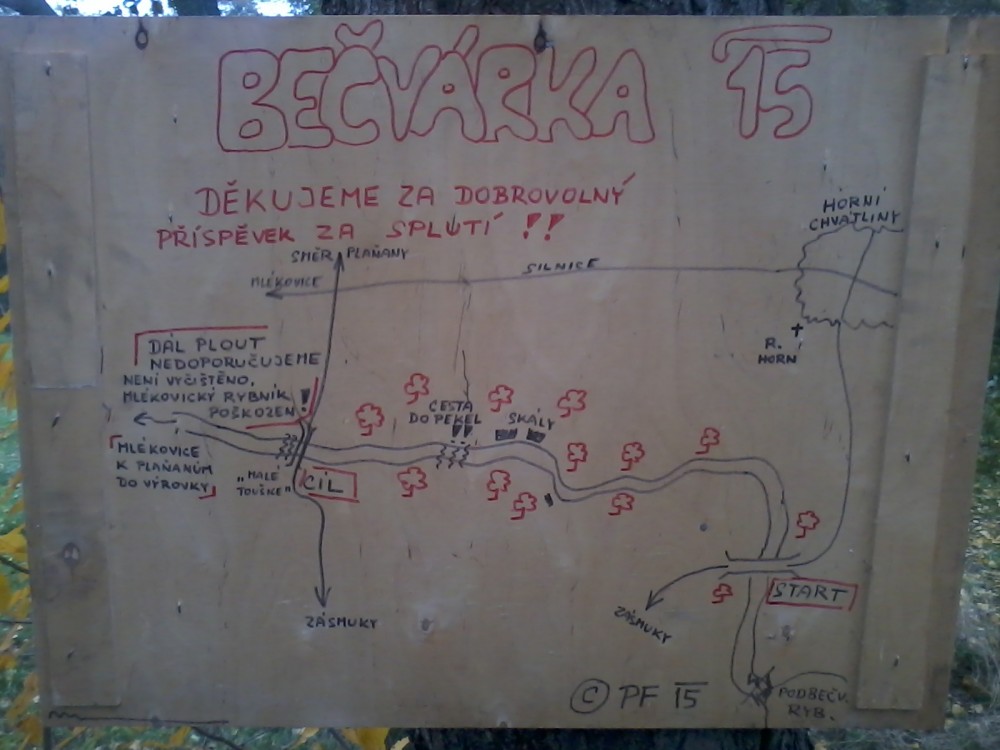 BEČVÁRKA 15
DĚKUJEME ZA DOBROVOLNÝ
PŘÍSPĚVEK ZA SPLUTÍ !!
HORNÍ
CHVATLINY
SMĚR PLAŇANY
SILNICE
MLÉKOVICE
R.
HORN
DÁL PLOUT
NEDOPORUČUJEME
NENÍ VYČIŠTĚNO,
MLÉKOVICKÝ RYBNÍK
POŠKOZEN !
CESTA
DO PEKEL
SKÁLY
MLÉKOVICE
K PLAŇANŮM
DO VÝROVKY
"MALÉ
TOUŠICE"
CÍL
START
ZÁSMUKY
ZÁSMUKY
PODBEČV.
RYB.
© PF 15